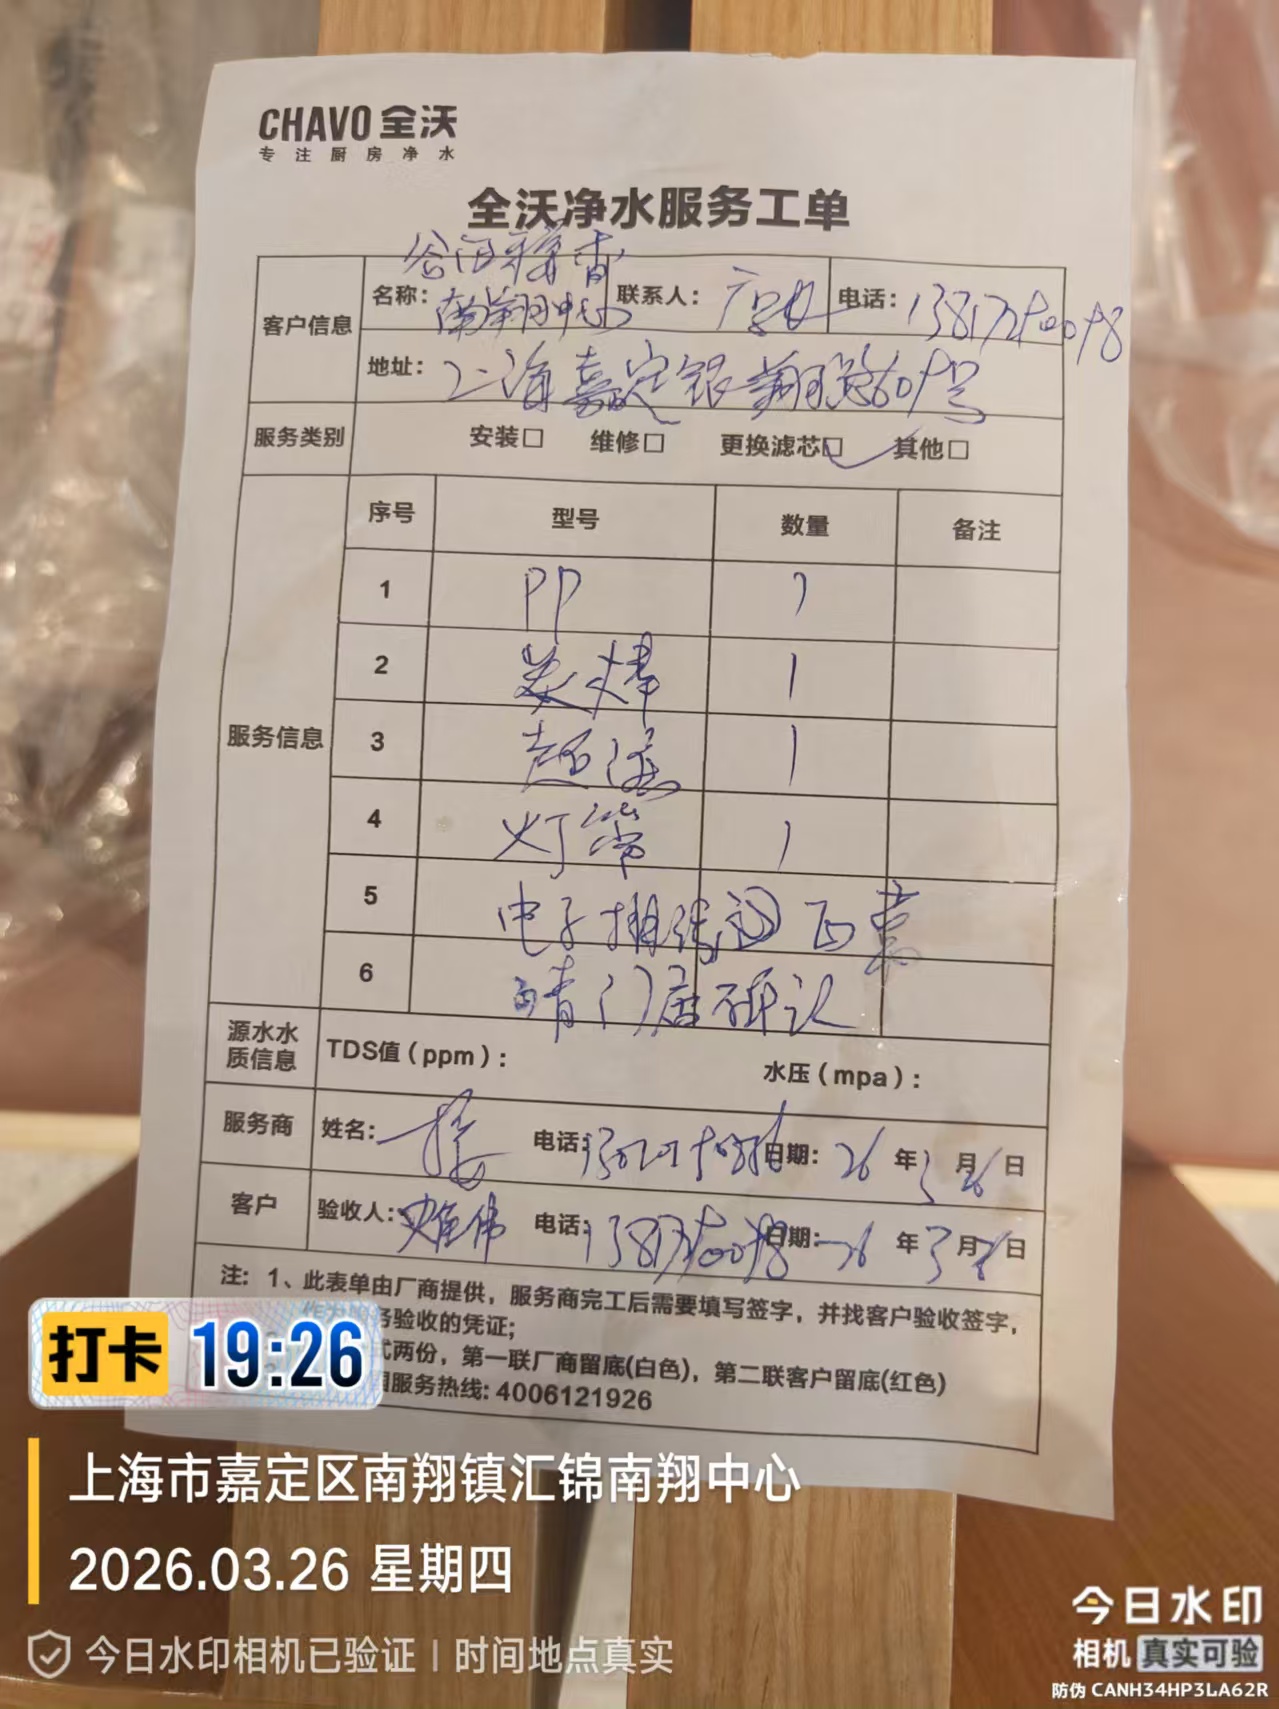 CHAVO 全沃
专注厨房净水
全沃净水服务工单
客户信息
名称: 谷田稼香 南翔中心
联系人: 店长
电话:
地址: 上海嘉定银翔路609号
服务类别 安装□ 维修□ 更换滤芯□✓ 其他□
服务信息
序号 型号 数量 备注
1 PP 1
2 炭棒 1
3 超滤 1
4 灯管 1
5 电子排线
6 请门店确认
源水水质信息 TDS值(ppm): 水压(mpa):
服务商 姓名: 电话: 日期: 26年3月26日
客户 验收人: 电话: 日期: 26年3月26日
注: 1、此表单由厂商提供，服务商完工后需要填写签字，并找客户验收签字，
务验收的凭证;
式两份，第一联厂商留底(白色)，第二联客户留底(红色)
国服务热线: 4006121926
打卡 19:26
上海市嘉定区南翔镇汇锦南翔中心
2026.03.26 星期四
今日水印相机已验证 | 时间地点真实
今日水印
相机 真实可验
防伪 CANH34HP3LA62R